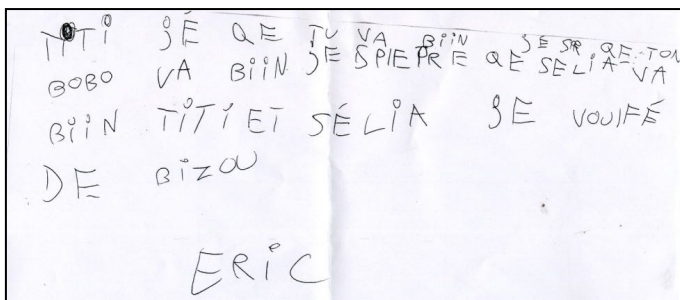 TiTi JÉ QE TU VA BiiN JE SR QE TON
BOBO VA BiiN JE DPIEPRE QE SELIA VA
BiiN TiTi ET SÉLiA JE VOUIFÉ
DE BiZOU
ERiC